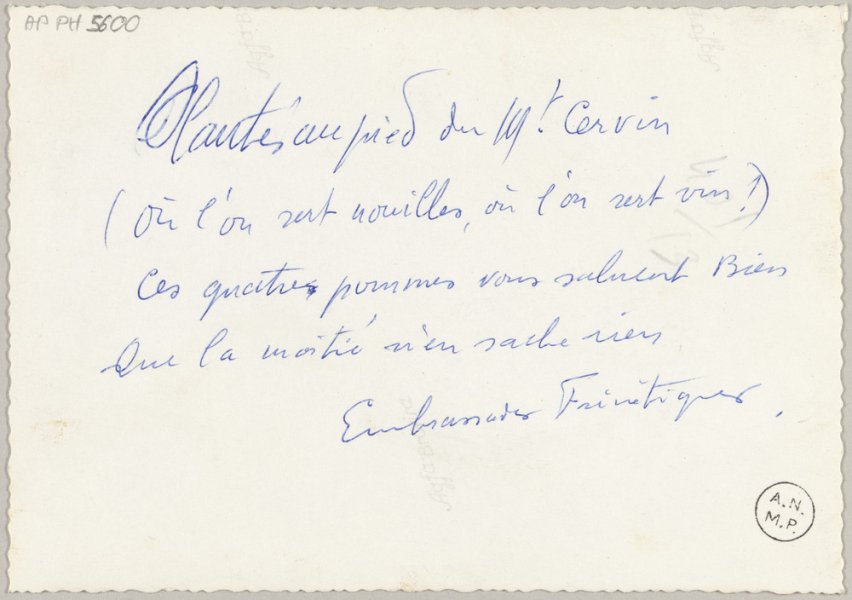 AP PH 5600
Plantés au pied du Mt. Cervin
(où l'on sert nouilles, où l'on sert vin!)
Ces quatres pommes vous saluent Bien
Que la moitié n'en sache rien
Embrassades Frénétiques.
A.N.
M.P.